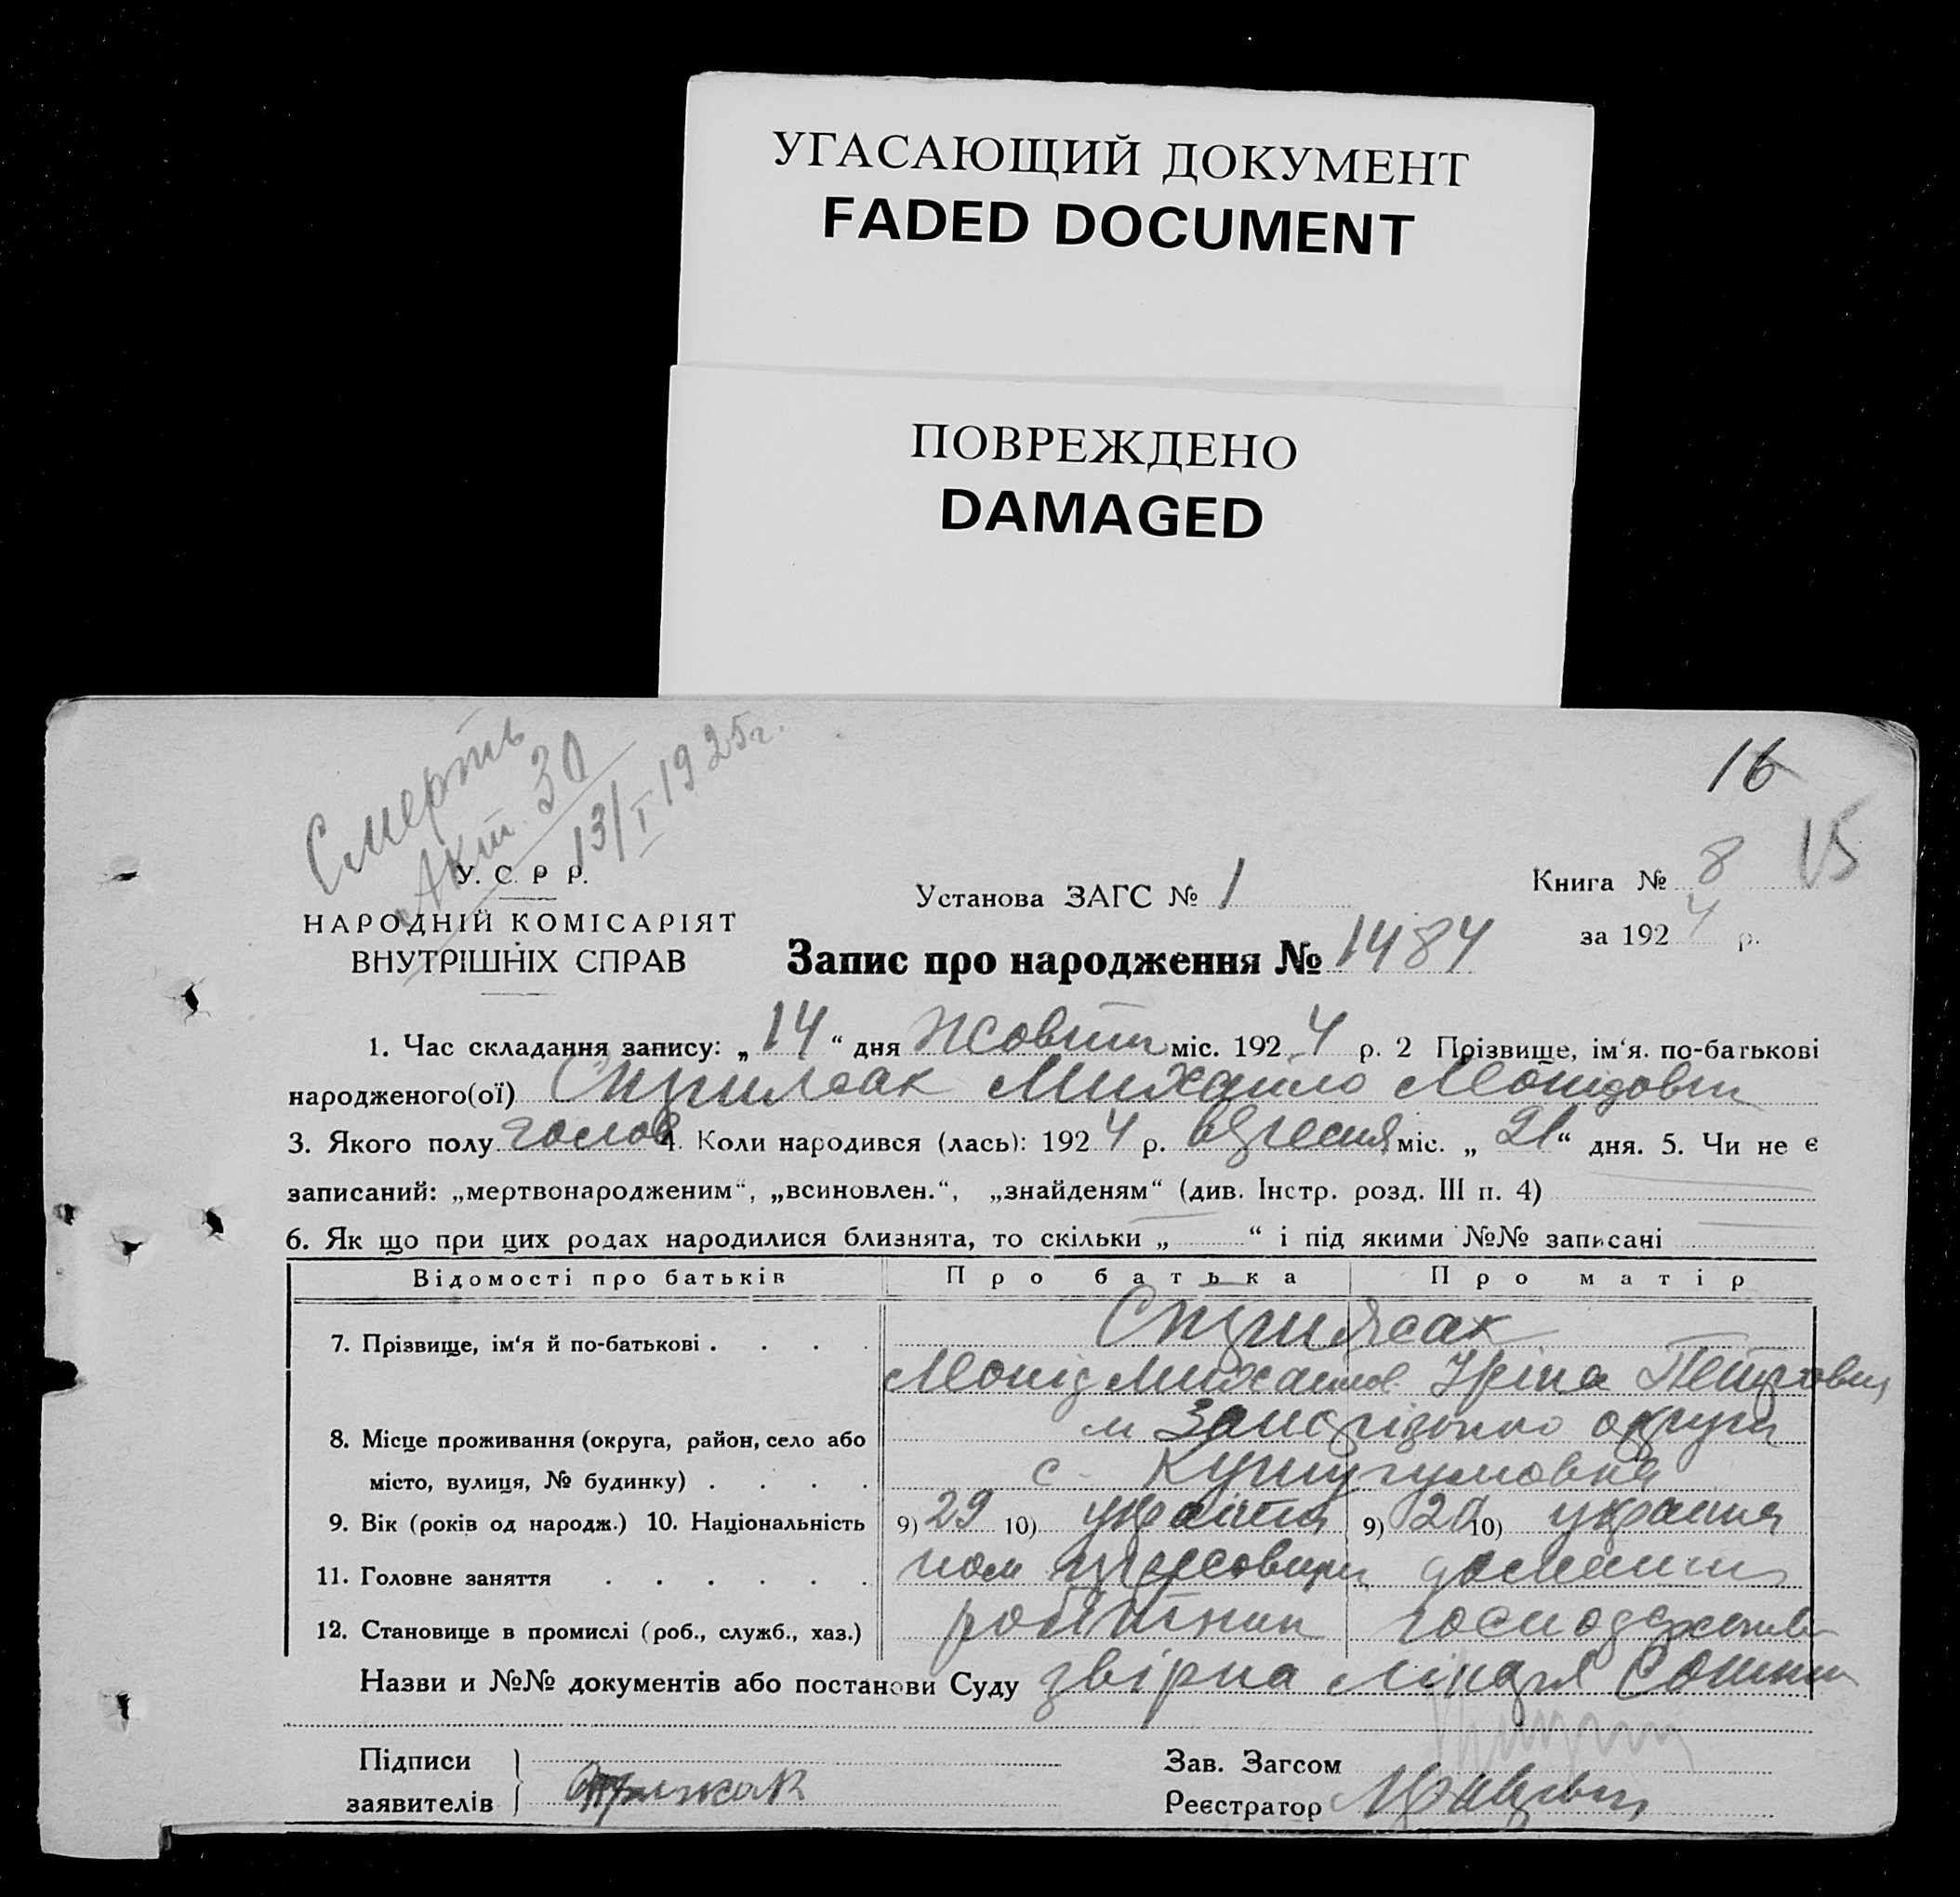 УГАСАЮЩИЙ ДОКУМЕНТ
FADED DOCUMENT
ПОВРЕЖДЕНО
DAMAGED
Смерть
Акт. 30
13/I 1925г.
16
15
У. С. Р. Р.
НАРОДНІЙ КОМІСАРІЯТ
ВНУТРІШНІХ СПРАВ
Установа ЗАГС № 1
Книга № 8
за 1924 р.
Запис про народження № 1484
1. Час складання запису: „14“ дня Жовтн міс. 1924 р. 2 Прізвище, ім‘я. по-батькові
народженого(ої) Михайло
3. Якого полу 4. Коли народився (лась): 1924 р. вересня міс. „21“ дня. 5. Чи не є
записаний: „мертвонародженим“, „всиновлен.“, „знайденям“ (див. Інстр. розд. III п. 4)
6. Як що при цих родах народилися близнята, то скільки „ “ і під якими №№ записані
Відомості про батьків Про батька Про матір
7. Прізвище, ім‘я й по-батькові
Михайлов Іріна Петровна
8. Місце проживання (округа, район, село або округи
місто, вулиця, № будинку) с. Кушугумовка
9. Вік (років од народж.) 10. Національність 9) 29 10) 9) 10)
11. Головне заняття
12. Становище в промислі (роб., служб., хаз.) робітник
Назви и №№ документів або постанови Суду звірна
Підписи
заявителів
Зав. Загсом
Реєстратор